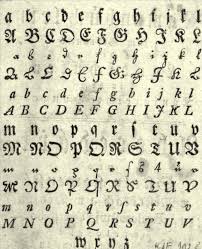 a b c d e f g h i j k l
A B C D E F G H I J K L
a b c d e f g h i j k l
A B C D E F G H I J K L
a b c d e f g h i j k l
A B C D E F G H I J K L
m n o p q r s t u v
M N O P Q R S T U V
m n o p q r s t u v
M N O P Q R S T U V
m n o p q r s t u v
M N O P Q R S T U V
w x y z